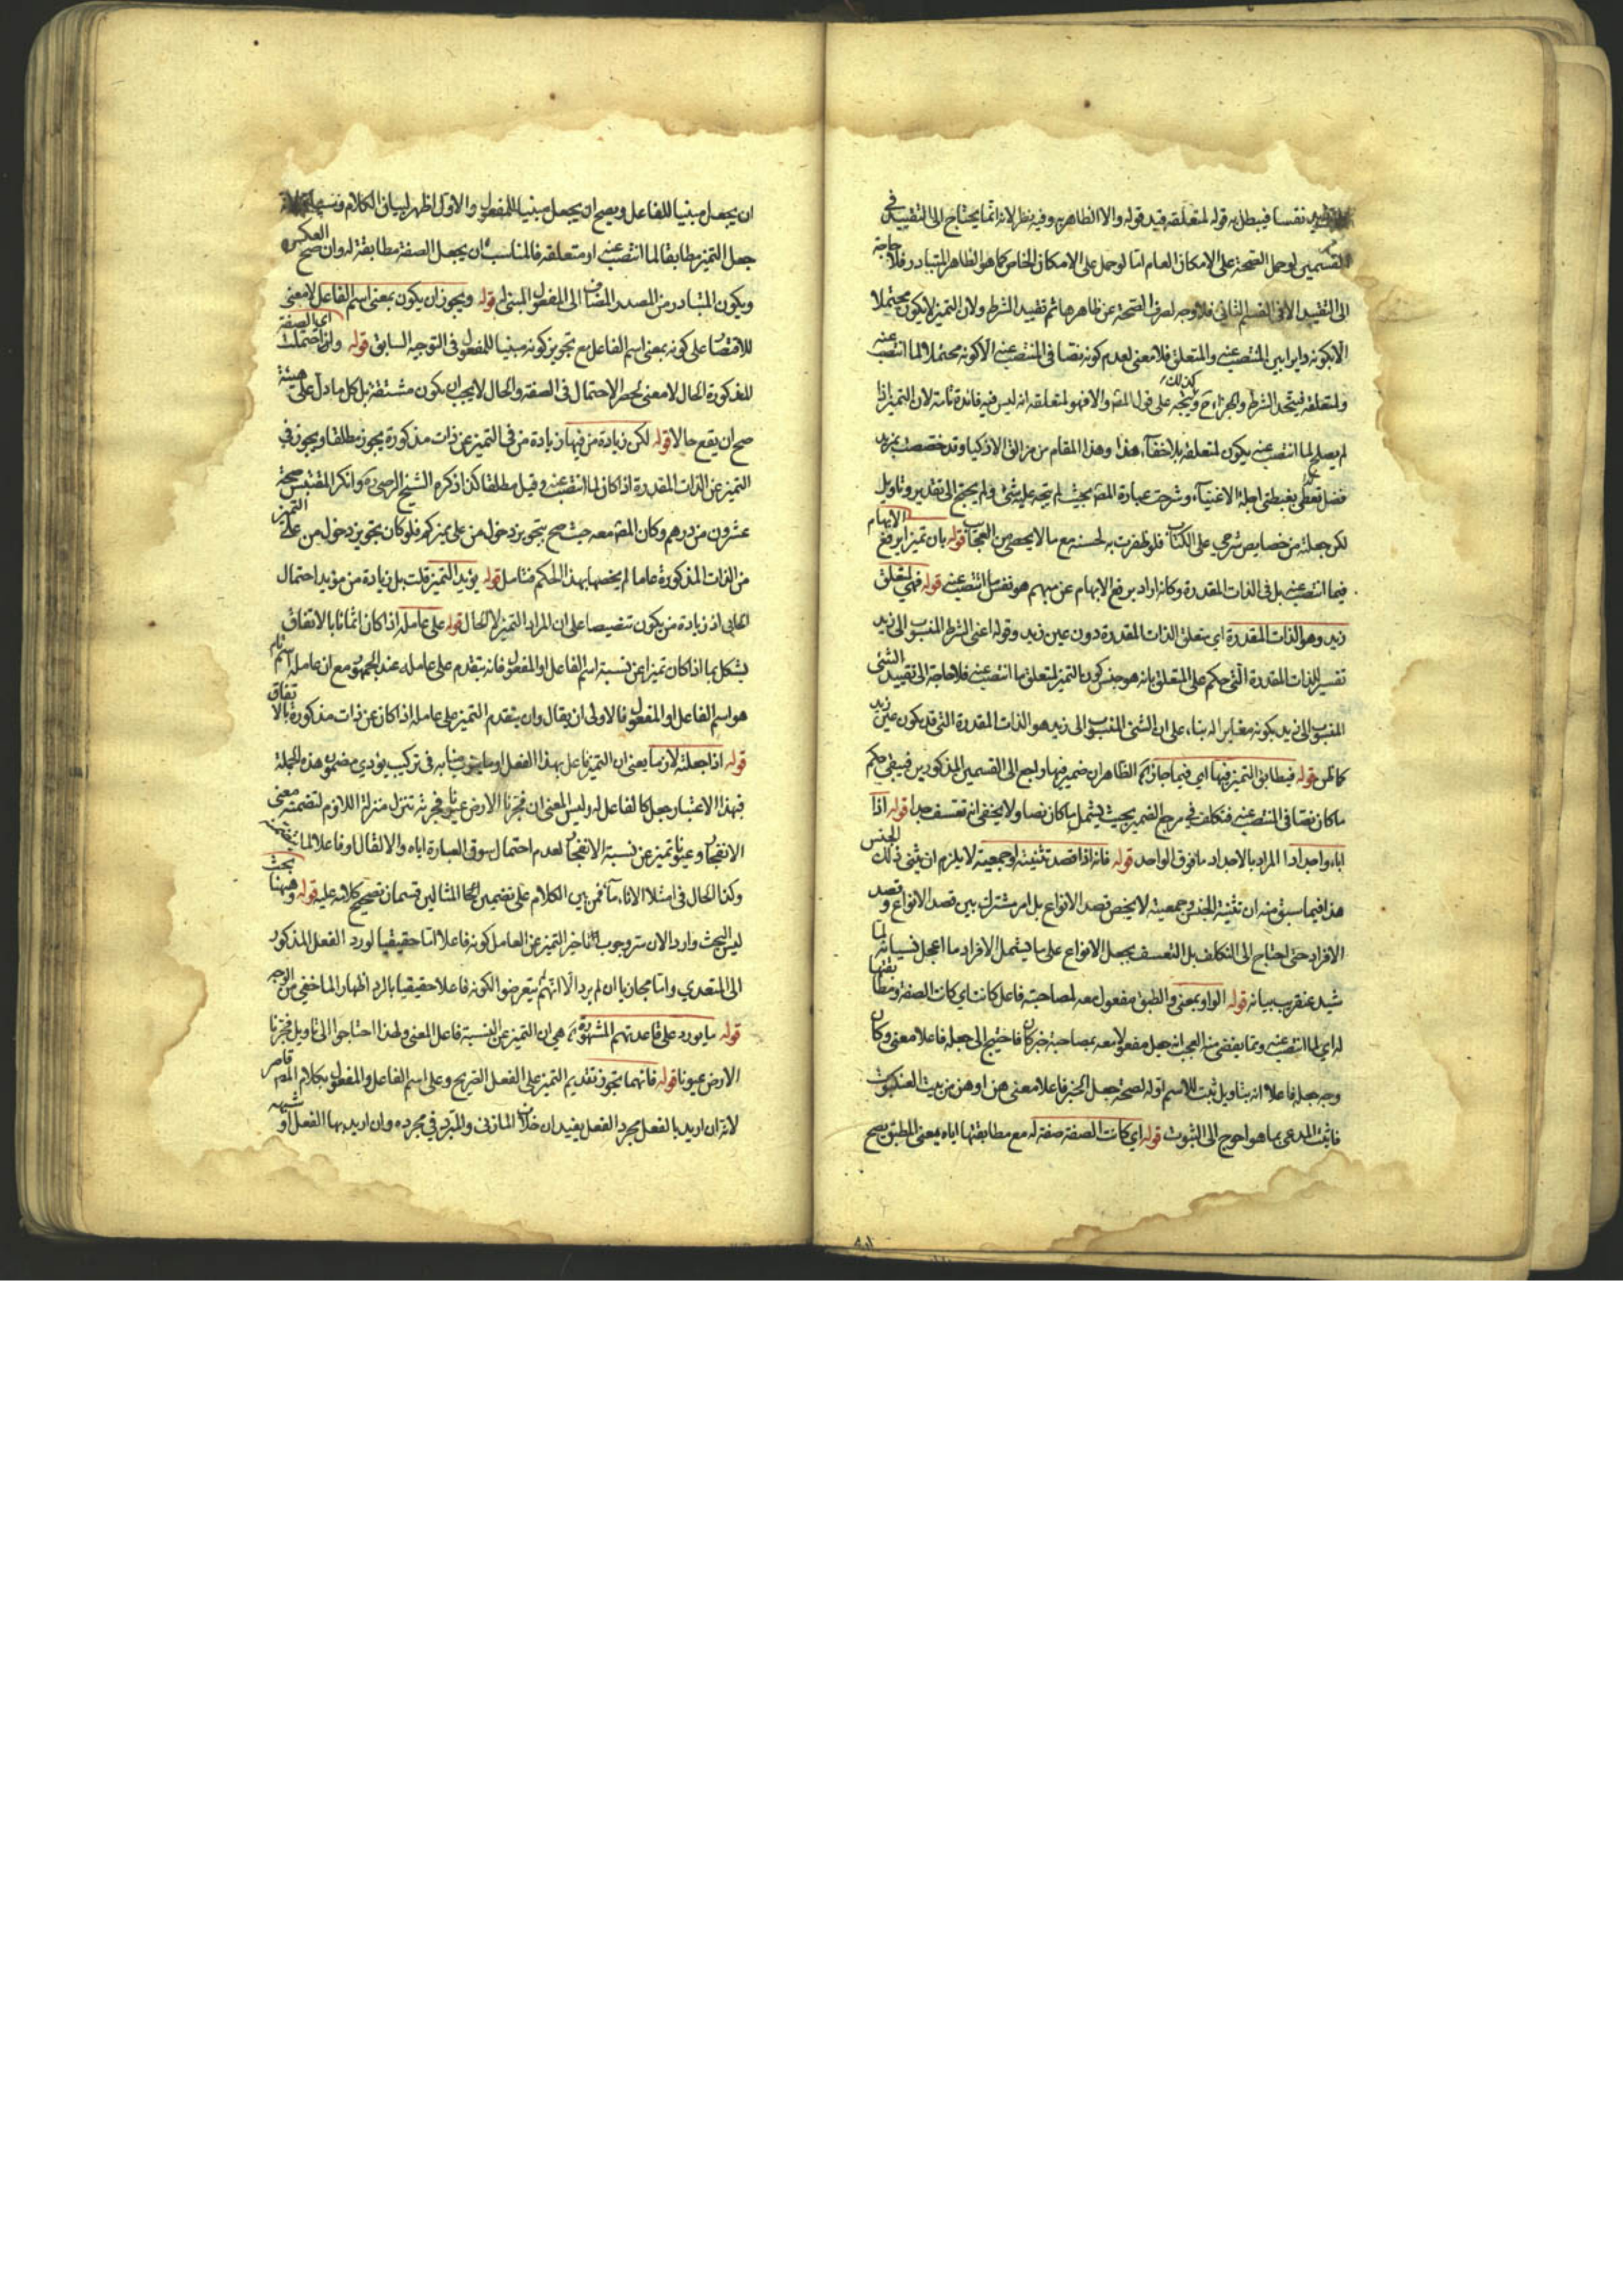 نفسا فيبطل به قوله لمتعلقه قيد قوله والا الظاهر به وفيه نظر لانه انما يحتاج الى التقييد في
القسمين لو حمل الصحة على الامكان العام اما لو حمل على الامكان الخاص كما هو الظاهر المتبادر فلا حاجة
الى التقييد الا في القسم الثاني فلا وجه لصرف الصحة عن ظاهرها ثم تقييد الشرط ولان التميز لا يكون محتملا
الا بكونه دايرا بين المنتصب عنه والمتعلق فلا معنى لعدم كونه نصا في المنتصب عنه الا كونه محتملا لما انتصب عنه
ولمتعلقه فيتحد الشرط والجزاء ح ويتجه كذلك على قول المص والا فهو لمتعلقه انه ليس فيه فائدة تامة لان التميز اذا
لم يصلح لما انتصب عنه يكون لمتعلقه بلا خفاء هذا وهذا المقام من مزالق الاذكيا وقد خصصت بمزيد
فضل يغبطني اجلة الاغنيآء وشرحت عبارة المص بحيث لم يتجه عليه شئ ولم يحتج الى تقدير وتاويل
لكن جعلته من خصايص شرحي على الكتاب فلو ظفرت به لحسنه مع ما لا يحصى من العجاب قوله بان تميزا يرفع الابهام
فيما انتصب عنه بل في الذات المقدرة وكانه اراد يرفع الابهام عن مبهم هو نفس ما انتصب عنه قوله فهي لمتعلق
زيد وهو الذات المقدرة اي متعلق الذات المقدرة دون عين زيد وقوله اعني الشرط المنسوب الى زيد
تفسير للذات المقدرة التي حكم على المتعلق بانه هو جنس كون التميز لمتعلق ما انتصب عنه فلا حاجة الى تقييد الشئ
المنسوب الى زيد بكونه مغايرا له بناء على ان الشئ المنسوب الى زيد هو الذات المقدرة التي قد يكون عين زيد
كما ظن قوله فيطابق التميز فيها اي فيما جاز الظاهر ان ضمير فيها راجع الى القسمين المذكورين فيبقى حكم
ما كان نصا في المنتصب عنه فتكلف في مرجع الضمير بحيث يشمل ما كان نصا ولا يخفى انه تعسف جدا قوله اذا
اباء واحدادا المراد بالاحداد ما فوق الواحد قوله فانه اذا قصد تثنيته او جمعيته لا يلزم ان يثنى ذلك الجنس
هذا فيما سبق منه ان تثنية الجنس وجمعيته لا يخص قصد الانواع بل امر مشترك بين قصد الانواع وقصد
الافراد حتى احتاج الى التكلف بل التعسف بجعل الانواع على ما يشمل الافراد ما اعجل نسيانه لما
شيد عنقريب بيانه قوله الواو بمعنى والطبق مفعول معه لمصاحبة فاعل كانت اي كانت الصفة ومطابقتها
له اي لما انتصب عنه ومما يقضى منه العجب انه جعل مفعولا معه بمصاحبة خبر كان فاحتيج الى جعله فاعلا معنى وكان
وجه جعله فاعلا انه بتاويل ثبت للاسم او له لصحة جعل الخبر فاعلا معنى هذا وهن من بيت العنكبوت
فاثبت المدعى بما هو احوج الى الثبوت قوله اي كانت الصفة صفة له مع مطابقتها اياه بمعنى المطبق يصح
ان يجعل مبنيا للفاعل ويصح ان يجعل مبنيا للمفعول والاول اظهر لسياق الكلام
جعل التميز مطابقا لما انتصب عنه او متعلقه فالمناسب ان يجعل الصفة مطابقة له وان صح العكس
ويكون المتبادر من المصدر المضاف الى المفعول المبني له قوله ويجوز ان يكون بمعنى اسم الفاعل لا معنى
للاقتصار على كونه بمعنى اسم الفاعل مع تجويز كونه مبنيا للمفعول في التوجيه السابق قوله وان احتملت اي الصفة
المذكورة الحال لا معنى لحصر الاحتمال في الصفة والحال لا يجب ان يكون مشتقة بل كل ما دل على هيئة
صح ان يقع حالا قوله لكن زيادة من فيها زيادة من في التميز عن ذات مذكورة يجوز مطلقا ويجوز في
التميز عن الذات المقدرة اذا كان لما انتصب عنه وقيل مطلقا كذا ذكره الشيخ الرضي ره وانكر المقتبس صحة
عشرون من درهم وكان المص معه حيث صح بتجويز دخول من على مميز كم فلو كان تجويز دخول من على التميز
من الذات المذكورة عاما لم يخصها بهذا الحكم فتامل قوله يؤيد التميز قلت بل زيادة من مؤيد احتمال
الحالي اذ زيادة من يكون تنصيصا على ان المراد التميز لا الحال قوله على عامله اذا كان اسما تاما بالاتفاق
يشكل بما اذا كان تميزا عن نسبة اسم الفاعل او المفعول فانه يتقدم على عامله عند الجمهور مع ان عامله اسم تام
هو اسم الفاعل او المفعول فالاولى ان يقال وان يتقدم التميز على عامله اذا كان عن ذات مذكورة بالاتفاق
قوله اذا جعلته لازما يعني ان التميز فاعل بهذا الفعل او مناسبه في تركيب يؤدي مضمون هذه الجملة
فبهذا الاعتبار جعل كالفاعل له وليس المعنى ان فجرنا الارض عيونا فجرته تنزل منزلة اللازم لتضمنه معنى
الانفجار وعيونا تميز عن نسبة الانفجار لعدم احتمال سوق العبارة اياه والا لقال او فاعلا لما يتضمنه
وكذا الحال في امتلاء الاناء ماء فمن بين الكلام على تضمين المثالين قسمان تصحيح كلامه عليه قوله وههنا بحث
ليس البحث وارد الان سر وجوب تاخير التميز عن العامل كونه فاعلا اما حقيقيا لو رد الفعل المذكور
الى المتعدي واما مجازيا ان لم يرد الا انهم لم يتعرضوا لكونه فاعلا حقيقيا بالرد اظهارا لما خفي من الوجه
قوله ما يورد على قاعدتهم المشهورة هي ان التميز عن النسبة فاعل المعنى ولهذا احتاجوا الى تاويل فجرنا
الارض عيونا قوله فانهما يجوز تقديم التميز على الفعل الصريح وعلى اسم الفاعل والمفعول بكلام المص قاصر
لانه ان اريد بالفعل مجرد الفعل يفيد ان خلاف المازني والمبرد في مجرده وان اريد بها الفعل او شبهه